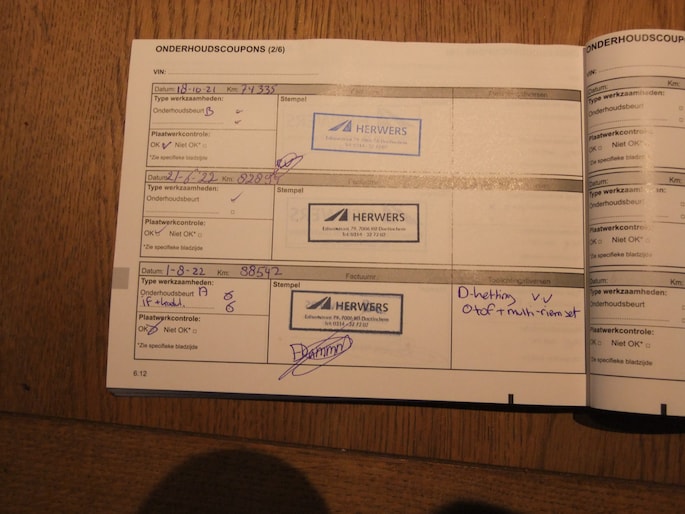 ONDERHOUDSCOUPONS (2/6)
VIN:
Datum: 18-10-21 Km: 74335
Type werkzaamheden:
Onderhoudsbeurt B
Plaatwerkcontrole:
OK Niet OK*
*Zie specifieke bladzijde
Stempel
HERWERS
Datum: 22 Km:
Type werkzaamheden:
Onderhoudsbeurt
Plaatwerkcontrole:
OK Niet OK*
*Zie specifieke bladzijde
Stempel
HERWERS
Edisonstraat 79, 7006 RB Doetinchem
Datum: 1-8-22 Km: 98542
Type werkzaamheden:
Onderhoudsbeurt A
Plaatwerkcontrole:
OK Niet OK*
*Zie specifieke bladzijde
Factuurnr.
Stempel
HERWERS
D-ketting VV
+ multi-riem set
6.12
ONDERHOUDSCOUP
VIN:
Datum:
Type werkzaam
Onderhoudsbeurt
Plaatwerkcontrole
OK Niet OK*
*Zie specifieke bladzijde
Datum:
Type werkzaam
Onderhoudsbeurt
Plaatwerkcontrole:
OK Niet OK*
*Zie specifieke bladzijde
Datum:
Type werkzaamhe
Onderhoudsbeurt
Plaatwerkcontrole:
OK Niet OK*
*Zie specifieke bladzijde